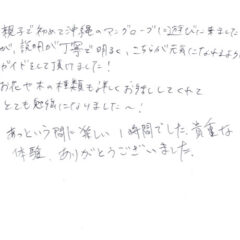 親子で初めて沖縄のマングローブに遊びに来ました
が、説明が丁寧で明るく、こちらが元気になれるよう
ガイドをして頂けました!
お花や木の種類も詳しくお話ししてくれて
とても勉強になりました〜!
あっという間に楽しい1時間でした。貴重な
体験、ありがとうございました。